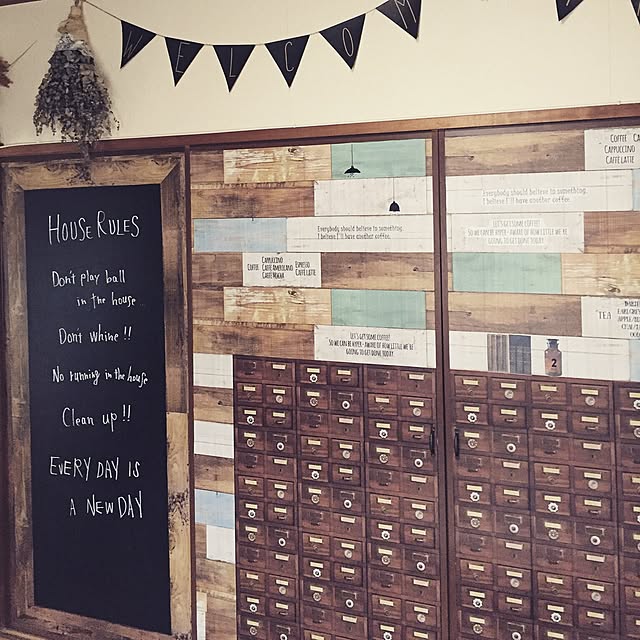 WELCOM
HOUSE RULES
Don't play ball
in the house...
Don't whine!!
No running in the house
Clean up!!
EVERY DAY IS
A NEW DAY
Everybody should believe in something.
I believe I'll have another coffee.
CAPPUCCINO
COFFEE CAFFE AMERICANO ESPRESSO
CAFFE MOCHA CAFFE LATTE
LET'S GET SOME COFFEE!
SO WE CAN BE HYPER-AWARE OF HOW LITTLE WE'RE
GOING TO GET DONE TODAY.
COFFEE CA
CAPPUCCINO
CAFFE LATTE
Everybody should believe in something.
I believe I'll have another coffee.
LET'S GET SOME COFFEE!
SO WE CAN BE HYPER-AWARE OF HOW LITTLE WE'RE
GOING TO GET DONE TODAY.
TEA
2